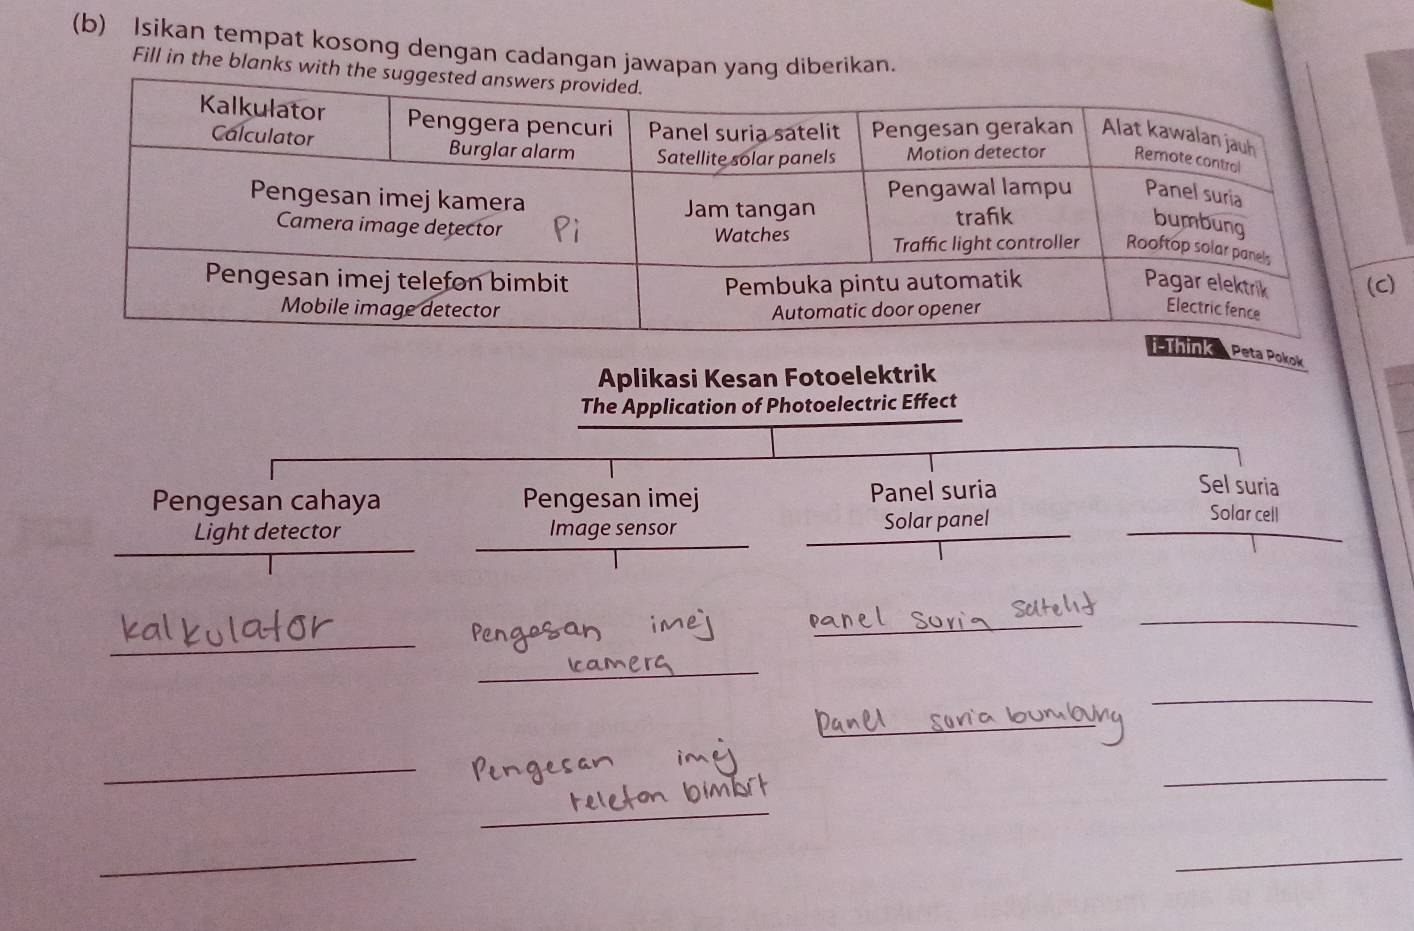 (b) Isikan tempat kosong dengan cadangan jawapan yang diberikan.
Fill in the blanks with the suggested answers provided.
Kalkulator
Calculator
Penggera pencuri
Burglar alarm
Panel suria satelit
Satellite solar panels
Pengesan gerakan
Motion detector
Alat kawalan jauh
Remote control
Pengesan imej kamera
Camera image detector
Pi
Jam tangan
Watches
Pengawal lampu
trafik
Traffic light controller
Panel suria
bumbung
Rooftop solar panels
Pengesan imej telefon bimbit
Mobile image detector
Pembuka pintu automatik
Automatic door opener
Pagar elektrik
Electric fence
(c)
i-Think Peta Pokok
Aplikasi Kesan Fotoelektrik
The Application of Photoelectric Effect
Pengesan cahaya
Light detector
Pengesan imej
Image sensor
Panel suria
Solar panel
Sel suria
Solar cell
kalkulator
Pengesan imej
kamera
panel suria satelit
Panel suria bumbung
Pengesan imej
telefon bimbit